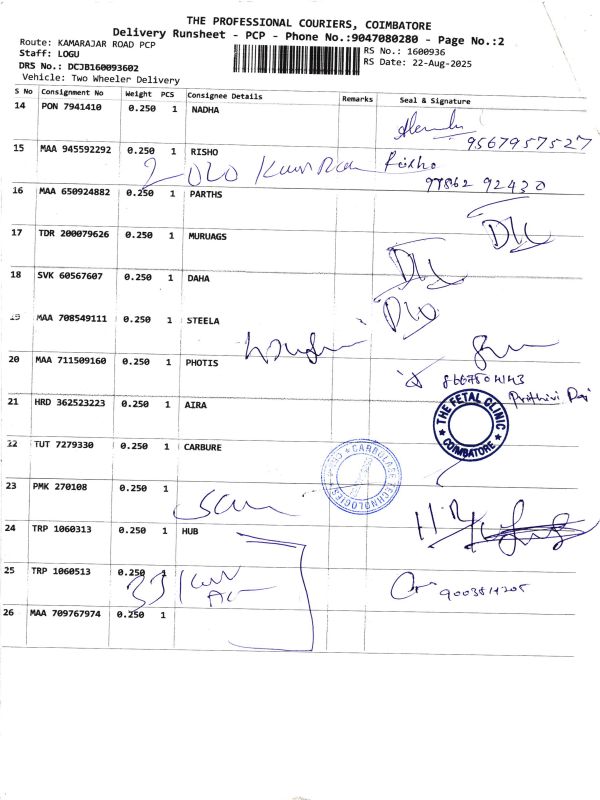 THE PROFESSIONAL COURIERS, COIMBATORE
Delivery Runsheet - PCP - Phone No.:9047080280 - Page No.:2
Route: KAMARAJAR ROAD PCP
Staff: LOGU
DRS No.: DCJB160093602
Vehicle: Two Wheeler Delivery
RS No.: 1600936
RS Date: 22-Aug-2025
S No Consignment No Weight PCS Consignee Details Remarks Seal & Signature
14 PON 7941410 0.250 1 NADHA
9567957527
15 MAA 945592292 0.250 1 RISHO
Risho
97862 92430
16 MAA 650924882 0.250 1 PARTHS
17 TDR 200079626 0.250 1 MURUAGS
18 SVK 60567607 0.250 1 DAHA
19 MAA 708549111 0.250 1 STEELA
20 MAA 711509160 0.250 1 PHOTIS
Prithivi Raj
21 HRD 362523223 0.250 1 AIRA
THE FETAL CLINIC
COIMBATORE
22 TUT 7279330 0.250 1 CARBURE
TECHNOLOGIES
23 PMK 270108 0.250 1
24 TRP 1060313 0.250 1 HUB
25 TRP 1060513 0.250 1
26 MAA 709767974 0.250 1